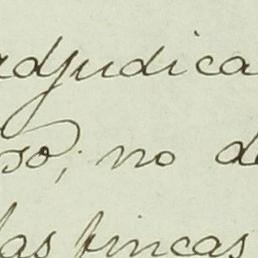 adjudica
so; no de
las fincas